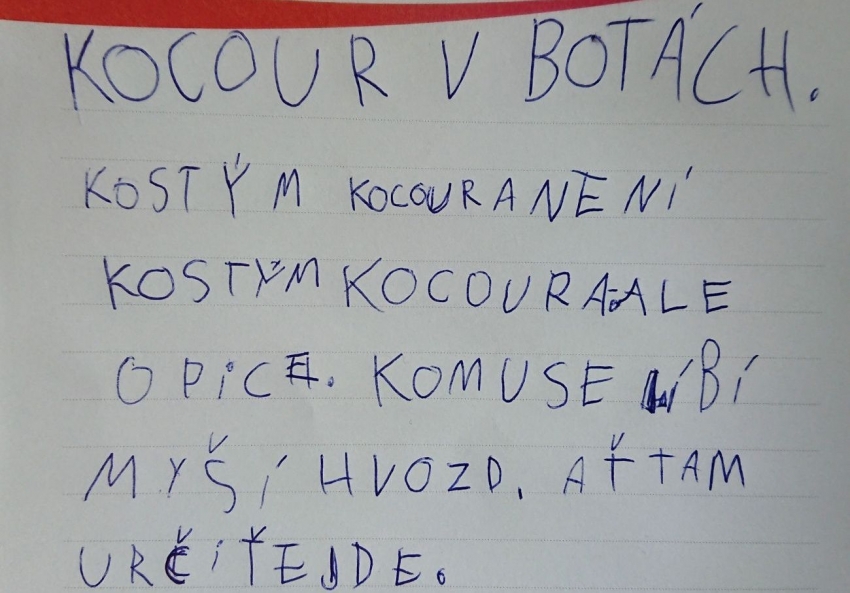 KOCOUR V BOTÁCH.
KOSTÝM KOCOURANENÍ
KOSTÝM KOCOURA.ALE
OPICE. KOMUSE LÍBÍ
MYŠÍ HVOZD, AŤTAM
URČIŤEJDE.